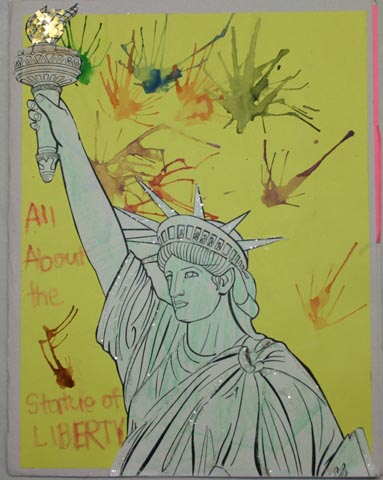 All
About
the
Statue of
LIBERTY